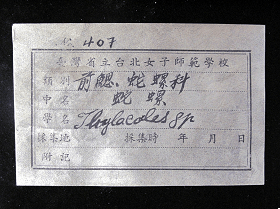 407
臺灣省立台北女子師範學校
類別 前鰓、蛇螺科
中名 蛇螺
學名 Thylacodes sp
採集地 採集時 年 月 日
附記